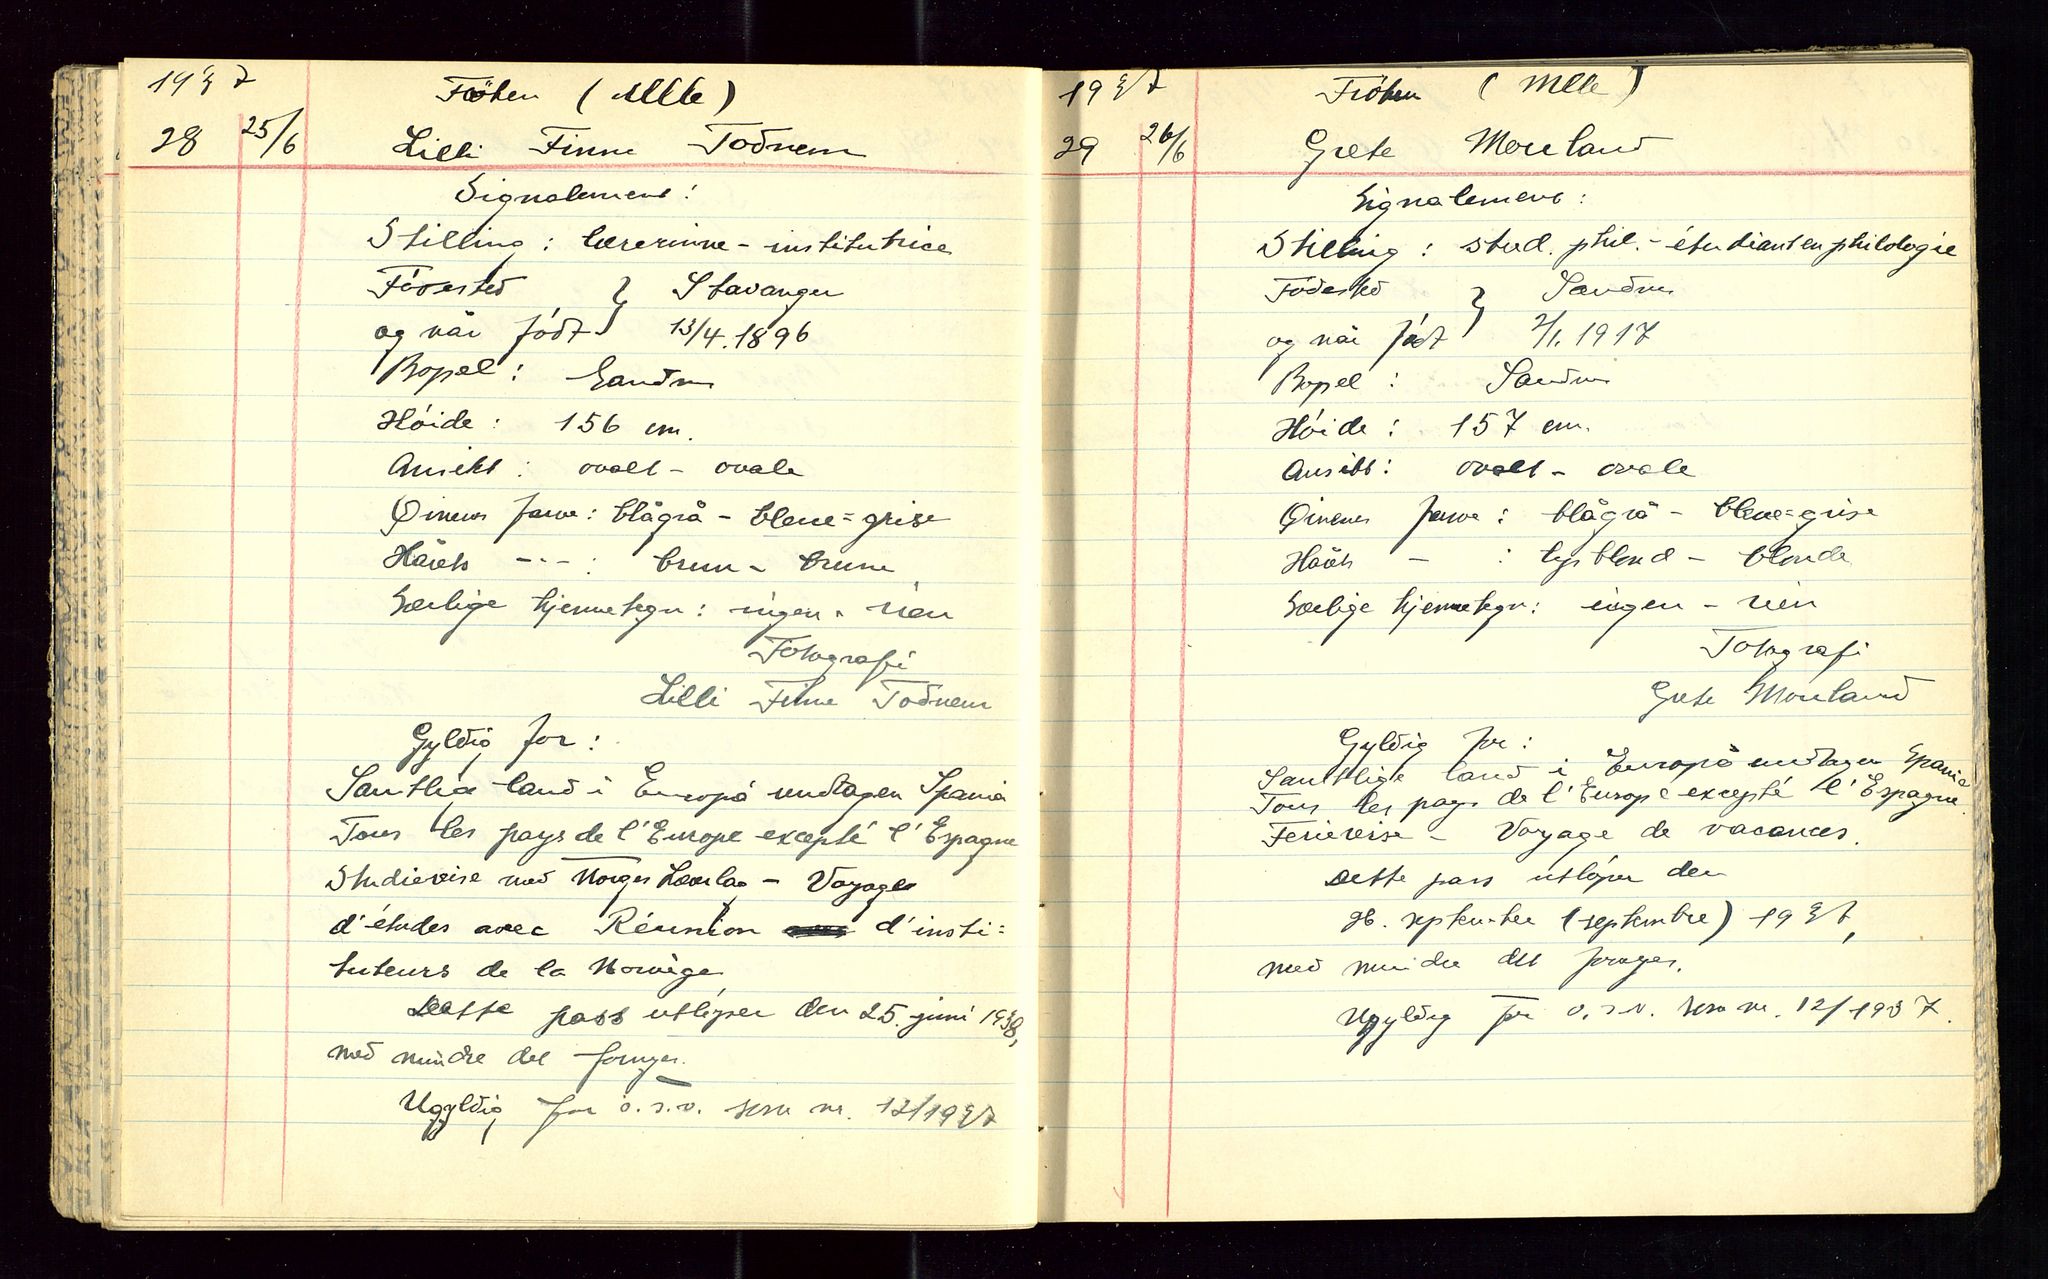 1937
Frøken (Mlle)
28 25/6 Lilli Finne Todnem
Signalement:
Stilling: lærerinne - institutrice
Fødested } Stavanger
og når født } 13/4. 1896
Bopel: Sandnes
Høide: 156 cm.
Ansikt: ovalt - ovale
Øinenes farve: blågrå - bleue=grise
Hårets -"-: brun - brune
Særlige kjennetegn: ingen - rien
Fotografi
Lilli Finne Todnem
Gyldig for:
Samtlige land i Europa undtagen Spania
Tous les pays de l'Europe excepté l'Espagne
Studiereise med Norges Lærerlag - Voyage
d'études avec Réunion d'insti=
tuteurs de la Norvège
Dette pass utløper den 25. juni 1938,
med mindre det fornyes.
Ugyldig for o.s.v. som nr. 12/1937
1937
Frøken (Mlle)
29 26/6 Grete Mouland
Signalement:
Stilling: stud. phil. - étudiant en philologie
Fødested } Sandnes
og når født } 2/1. 1917
Bopel: Sandnes
Høide: 157 cm.
Ansikt: ovalt - ovale
Øinenes farve: blågrå - bleue=grise
Hårets - : lys blond - blonde
Særlige kjennetegn: ingen - rien
Fotografi
Grete Mouland
Gyldig for:
Samtlige land i Europa undtagen Spania
Tous les pays de l'Europe excepté l'Espagne.
Feriereise - Voyage de vacances.
Dette pass utløper den
26. september (septembre) 1937,
med mindre det fornyes.
Ugyldig for o.s.v. som nr. 12/1937.